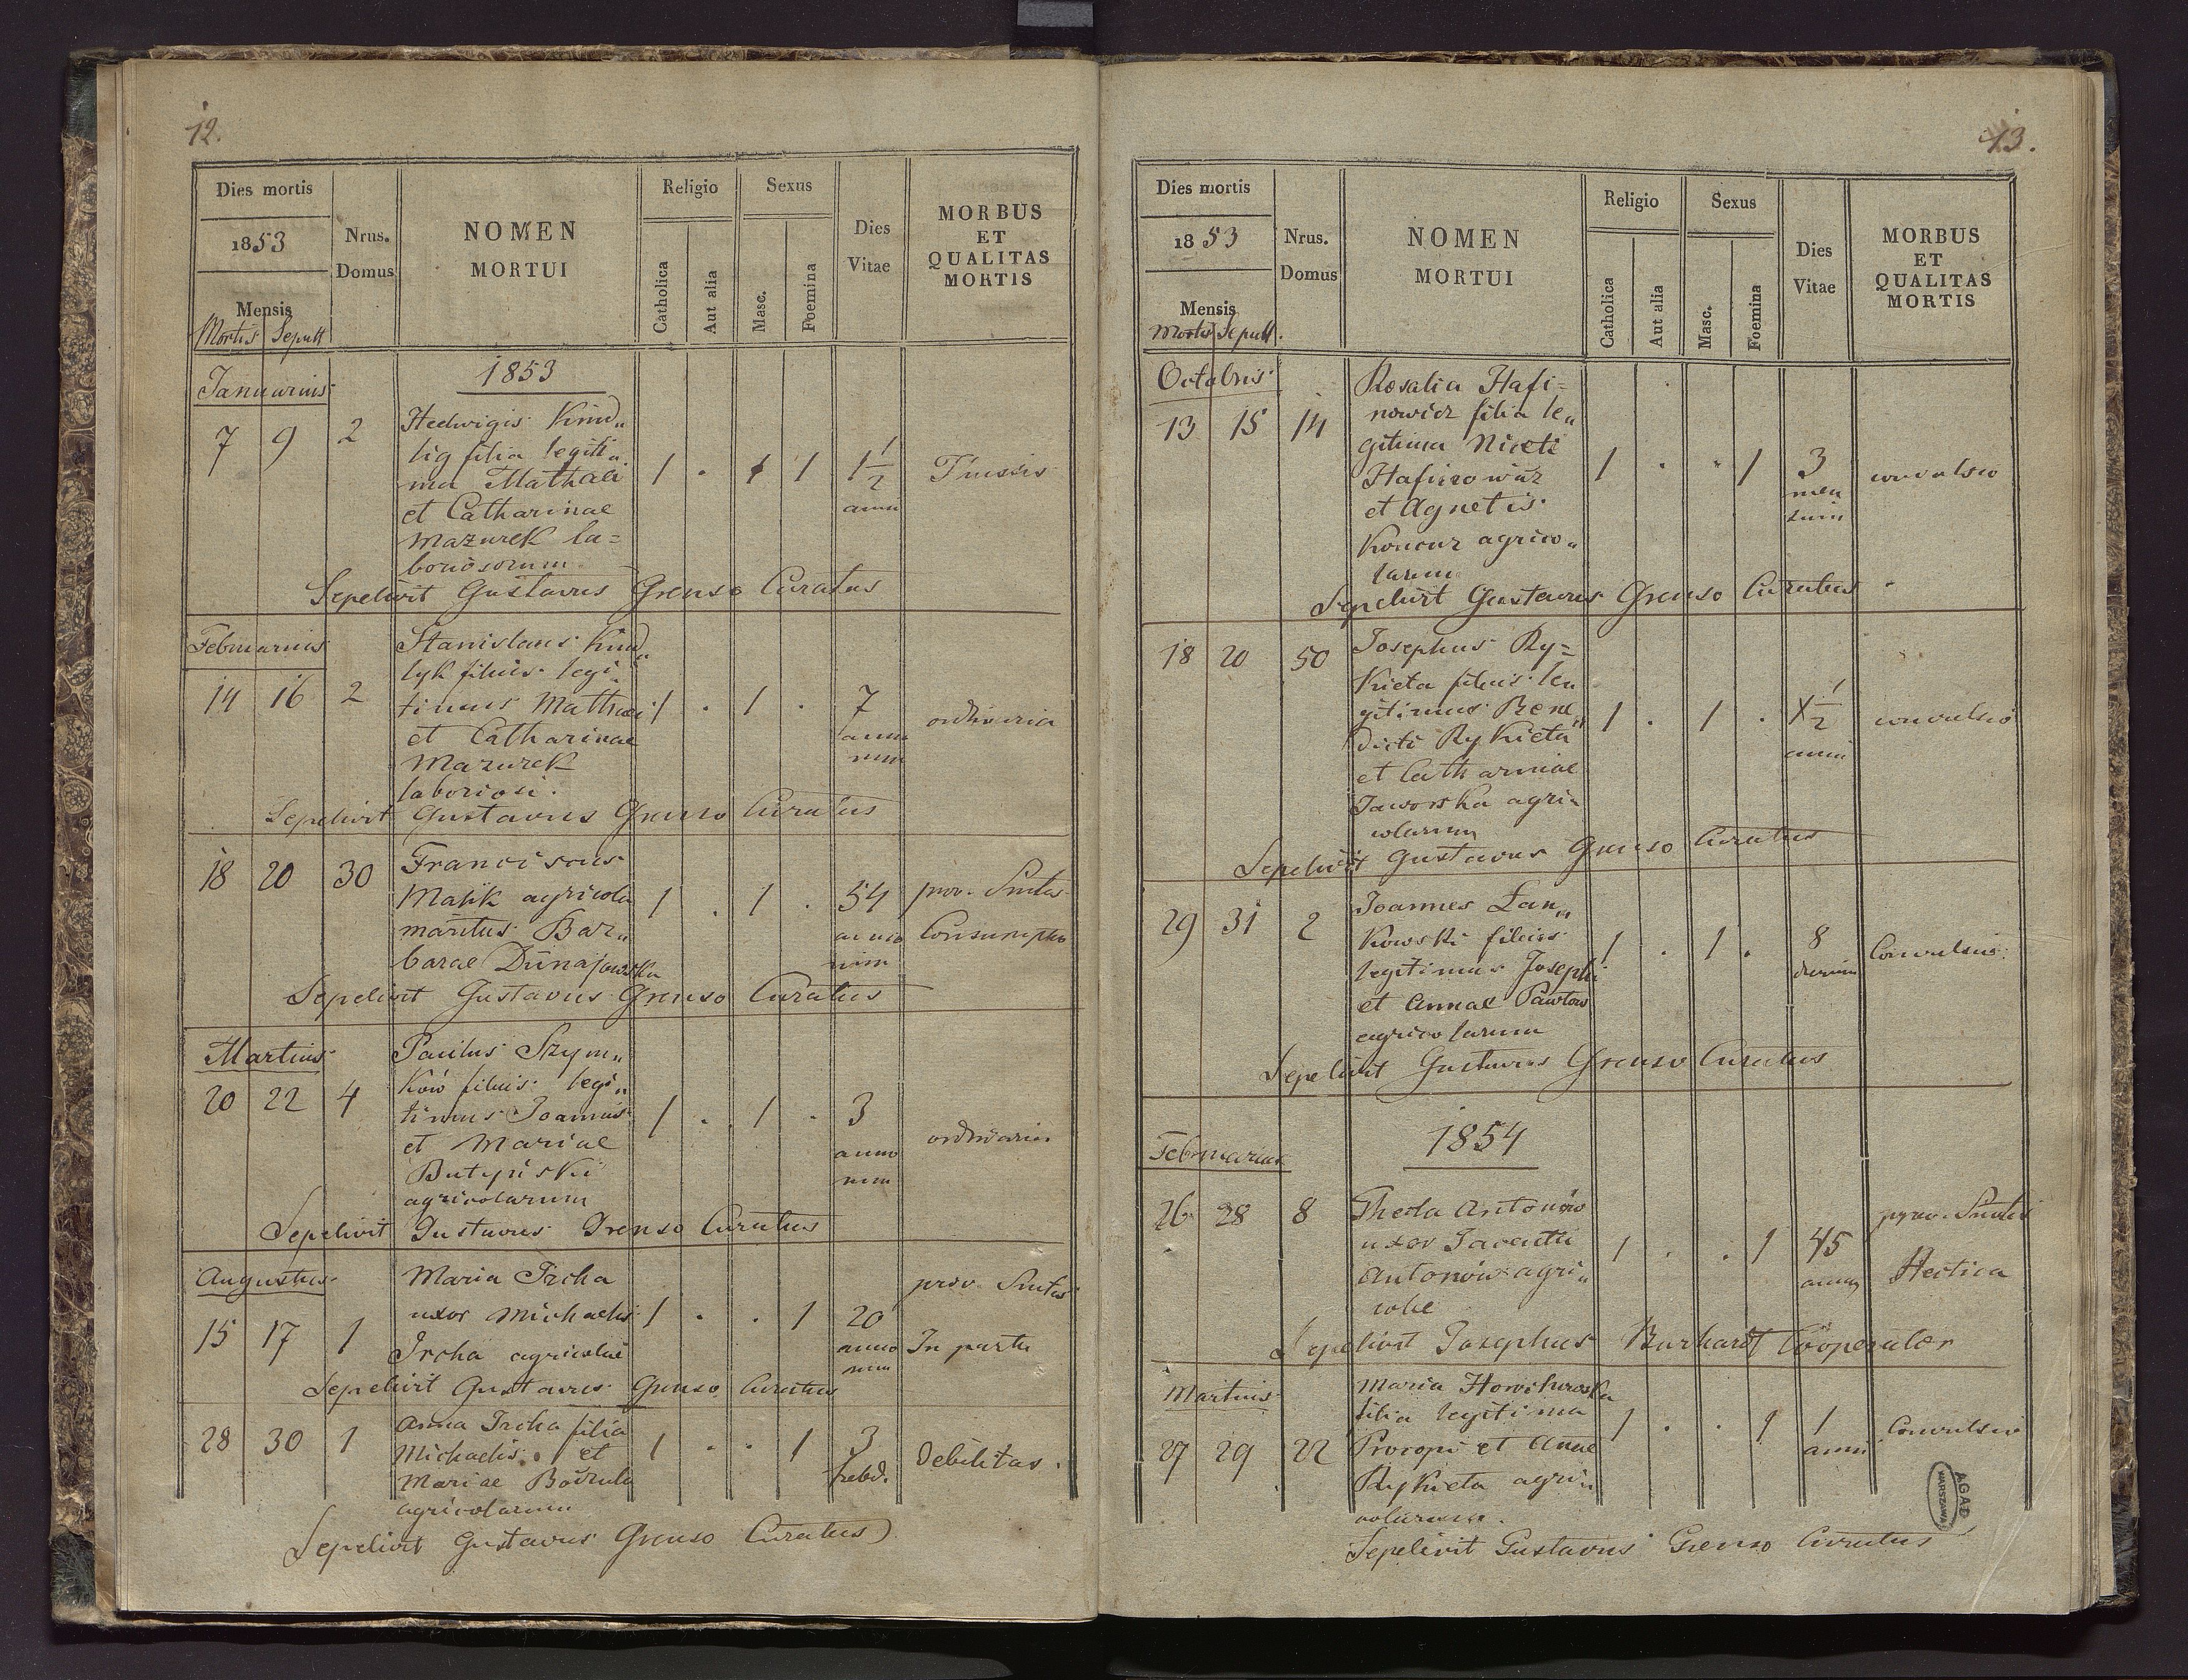 12.
Dies mortis
1853
Mensis
Mortis Sepult
Nrus.
Domus
NOMEN
MORTUI
Religio
Catholica
Aut alia
Sexus
Masc.
Foemina
Dies
Vitae
MORBUS
ET
QUALITAS
MORTIS
Januarius
1853
7 9 2
Hedwigis Kind„
lig filia legiti„
ma Mathaei
et Catharinae
Mazurek la=
boriosorum
1 . 1 1
1 1/2
anni
Tussis
Sepelivit Gustavus Grenso Curatus
Februarius
14 16 2
Stanislaus Kind„
lyk filius legi„
timus Mathaei
et Catharinae
Mazurek
laboriosi.
1 . 1 .
7
anno
rum
ordinaria
Sepelivit Gustavus Grenso Curatus
18 20 30
Franciscus
Malik agricola
maritus Bar„
barae Dunajowska
1 . 1 .
54
anno
rum
prov. Smtis
Consumptio
Sepelivit Gustavus Grenso Curatus
Martius
20 22 4
Paulus Szym„
ków filius legi„
timus Joannis
et Mariae
Butyński
agricolarum
1 . 1 .
3
anno
rum
ordinaria
Sepelivit Gustavus Grenso Curatus
Augustus
15 17 1
Maria Ircha
uxor Michaelis
Ircha agricolae
1 . . 1
20
anno
rum
prov. Smtis
In partu
Sepelivit Gustavus Grenso Curatus
28 30 1
Anna Ircha filia
Michaelis et
Mariae Bodrula
agricolarum
1 . . 1
3
hebd.
Debilitas.
Sepelivit Gustavus Grenso Curatus
13.
Dies mortis
1853
Mensis
Mortis Sepult.
Nrus.
Domus
NOMEN
MORTUI
Religio
Catholica
Aut alia
Sexus
Masc.
Foemina
Dies
Vitae
MORBUS
ET
QUALITAS
MORTIS
Octobris
13 15 14
Rosalia Hafi=
nowicz filia le„
gitima Niceti
Hafinowicz
et Agnetis
Koncur agrico„
larum
1 . . 1
3
men
sium
convulsio
Sepelivit Gustavus Grenso Curatus
18 20 50
Josephus Ry=
kieta filius le„
gitimus Bene„
dicti Rykieta
et Catharinae
Jaworska agri„
colarum
1 . 1 .
1/2
anni
convulsio
Sepelivit Gustavus Grenso Curatus
29 31 2
Joannes Łan„
kowski filius
legitimus Josephi
et Annae Pawłow
agricolarum
1 . 1 .
8
dierum
Convulsio
Sepelivit Gustavus Grenso Curatus
1854
Februarius
26 28 8
Thecla Antonów
uxor Jacenti
Antonów agri„
colae
1 . . 1
45
anno
prov. Smtis
Hectica
Sepelivit Josephus Burhardt Cooperator
Martius
27 29 22
Maria Horochowska
filia legitima
Procopi et Annae
Rykieta agri„
colarum.
1 . . 1
1
anni
Convulsio
Sepelivit Gustavus Grenso Curatus
AGAD
WARSZAWA